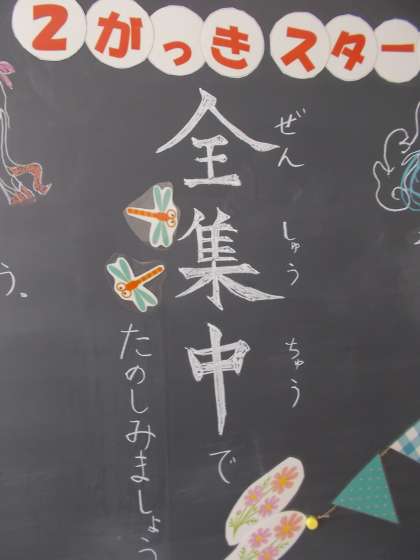 2がっきスター
全集中で
ぜんしゅうちゅう
たのしみましょう
う。